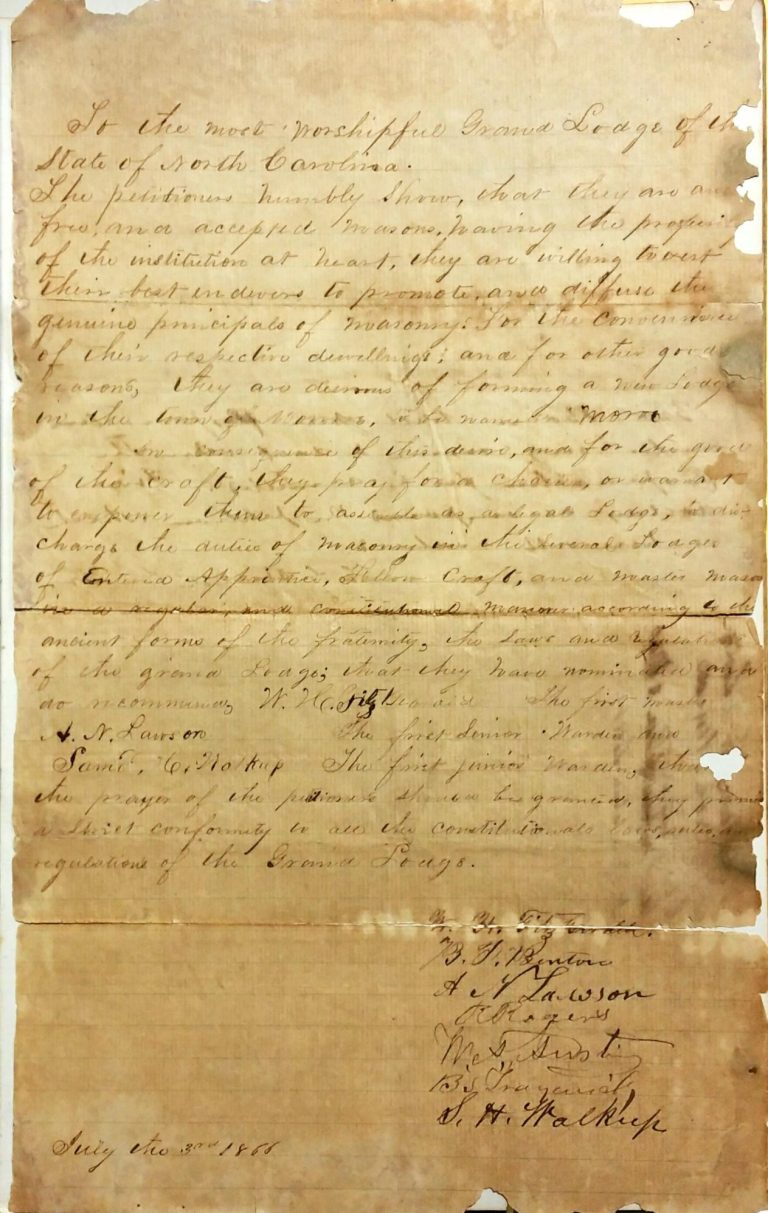 To the most Worshipful Grand Lodge of th
State of North Carolina.
The petitioners humbly show, that they are
free, and accepted masons, having the prosperity
of the institution at heart, they are willing to
their best endevers to promote, and diffuse the
genuine principals of masonry. For the convenience
of their respective dwellings; and for other good
reasons, they are desirous of forming a new Lodge
in the town of Monroe, to be named Monroe
In consequence of this desire, and for the good
of the craft, they pray for a charter, or warrant
to empower them to assemble as a legal Lodge, to dis-
charge the duties of masonry in the several Lodges
of Entered Apprentice, Fellow Craft, and master mason
in a regular, and constitutional manner according to the
ancient forms of the fraternity, the laws and regulations
of the grand Lodge; that they have nominated and
do recommend, W. H. Fitzgerald The first master
A. N. Lawson The first Senior Warden and
Saml. C. Walkup The first junior Warden,
the prayer of the petioners should be granted, they promise
a strict conformity to all the constitutionals laws, rules,
regulations of the Grand Lodge.
W. H. Fitzgerald.
B. F. Benton
A N Lawson
Rogers
W. S. Austin
B. S.
S. H. Walkup
July the 3rd 1866